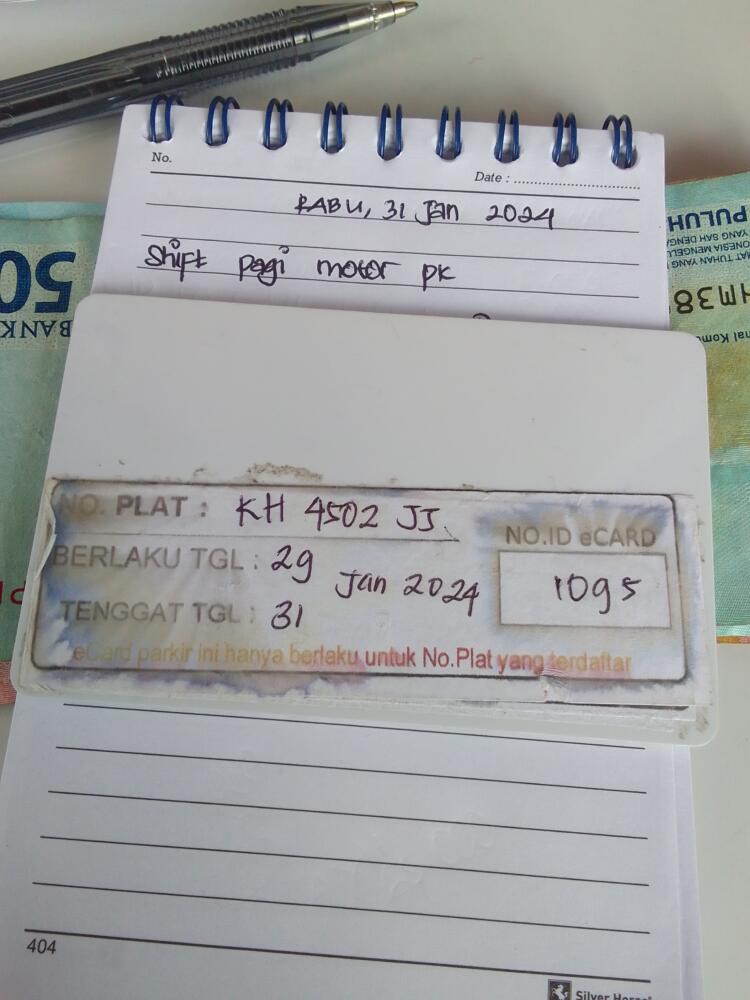 No.
Date :
RABU, 31 Jan 2024
Shift pagi motor pk
50
BANK
PULUH
HM38
NO. PLAT : KH 4502 JJ
NO.ID eCARD
BERLAKU TGL : 29
Jan 2024
1095
TENGGAT TGL : 31
eCard parkir ini hanya berlaku untuk No.Plat yang terdaftar
404
Silver Horse